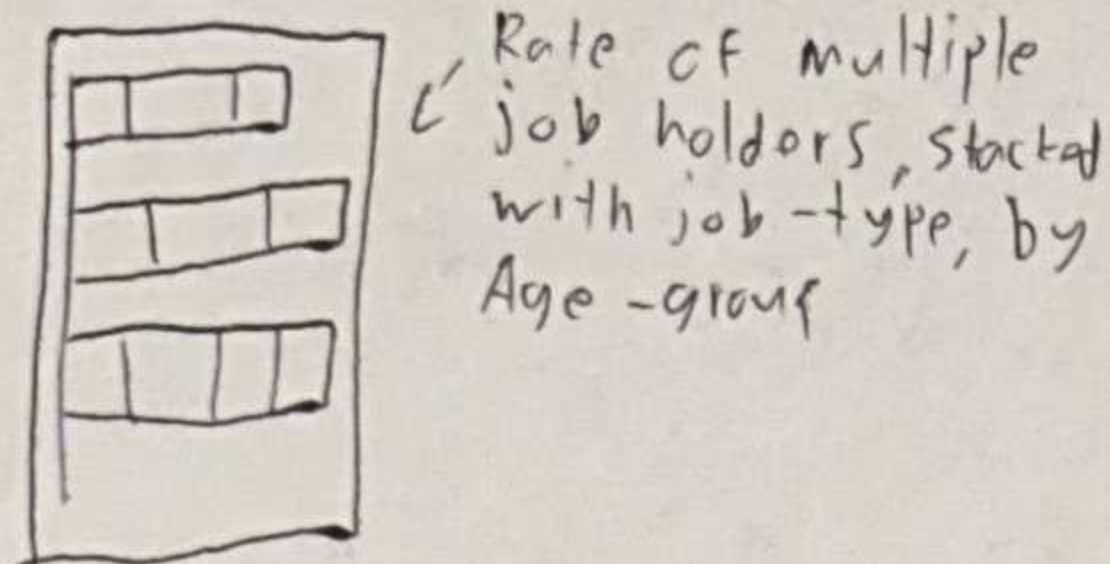 Rate of multiple
job holders, stacked
with job-type, by
Age-group